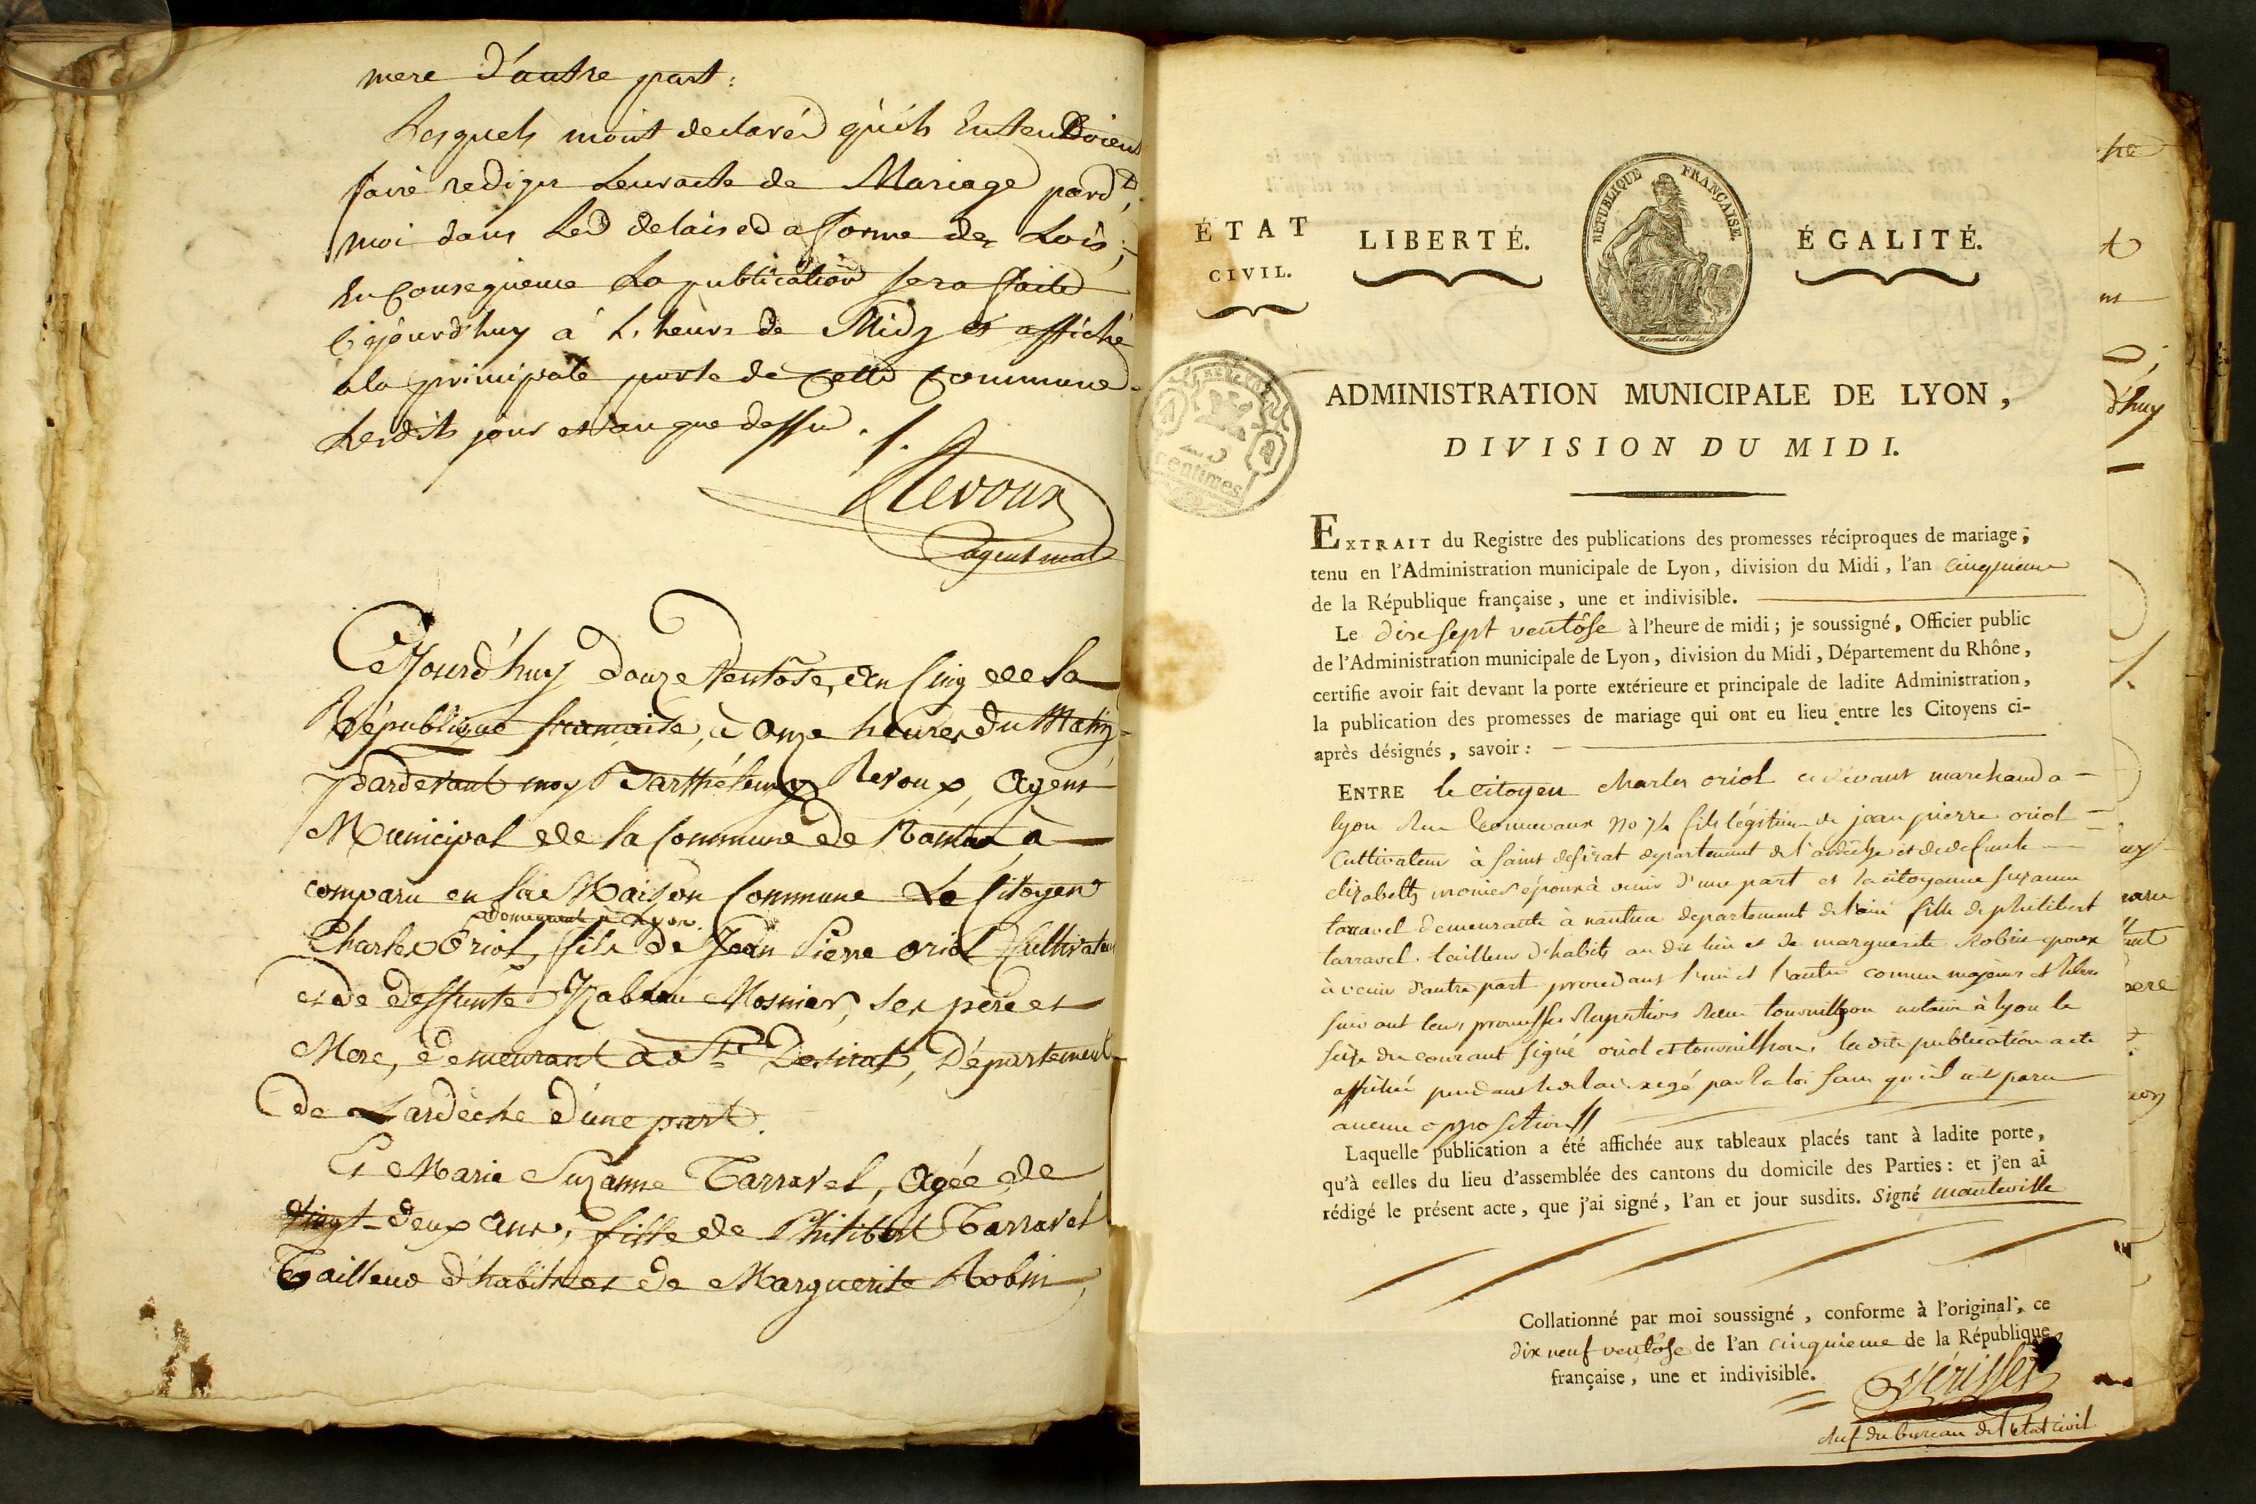 mere d'autre part:
Lesquels mont declaréd qúils Entendoient
faire rediger Leur acte de Mariage pard.t
moi dans Led delais ed a forme des Lois;
En Consequence La publication sera faite
C'ajourd'huy a L'heure de Midy et affiché
a la principale porte de Cette Commune
Lesdits jour et an que dessu ./.
Revoux
agent mal
Cejourd'huy douze Ventôse, an Cinq de la
République française, à onze heures du Matin
pardevant moy Barthélemy Revoux, Agent
Municipal de la Commune de a
comparu en la Maison Commune Le Citoyen
demeurant à Lyon
Charles Oriol, fils de Jean Pierre oriol Cultivateur
et de deffunte Mosnier, ses père et
Mere, demeurant a St Desirat, Département
de Lardèche d'une part.
Et Marie Suzanne Tarravel, agée de
vingt-deux ans, fille de Philibert Tarravel
Tailleur d'habits et de Marguerite Robin,
ÉTAT
CIVIL.
LIBERTÉ.
RÉPUBLIQUE FRANÇAISE.
ÉGALITÉ.
ADMINISTRATION MUNICIPALE DE LYON,
DIVISION DU MIDI.
25
centimes
EXTRAIT du Registre des publications des promesses réciproques de mariage,
tenu en l'Administration municipale de Lyon, division du Midi, l'an cinquieme
de la République française, une et indivisible.
Le dix sept ventôse à l'heure de midi; je soussigné, Officier public
de l'Administration municipale de Lyon, division du Midi, Département du Rhône,
certifie avoir fait devant la porte extérieure et principale de ladite Administration,
la publication des promesses de mariage qui ont eu lieu entre les Citoyens ci-
après désignés, savoir:
ENTRE le citoyen charles oriol cidevant marchand a
lyon rue No 74 fils légitime de jean pierre oriol
Cultivateur à saint desirat departement de l'ardêche et de defunte
elizabeth monier époux à venir d'une part et la citoyenne suzanne
tarravel demeurante à nantua departement de l'ain fille de philibert
tarravel tailleur d'habits au dit lieu et de marguerite Robin epoux
à venir d'autre part procedans l'un et l'autre comme majeurs et libres
suivant leurs promesses Respectives Reçue tournilhon notaire à lyon le
seize du courant signé oriol et tournilhon, la dite publication a été
affichée pendant le delai exigé par la loi sans qu'il ait paru
aucune opposition //
Laquelle publication a été affichée aux tableaux placés tant à ladite porte,
qu'à celles du lieu d'assemblée des cantons du domicile des Parties: et j'en ai
rédigé le présent acte, que j'ai signé, l'an et jour susdits. Signé manteville
Collationné par moi soussigné, conforme à l'original, ce
dix neuf ventôse de l'an cinquieme de la République
française, une et indivisible.
chef du bureau de l'état civil
d'huy